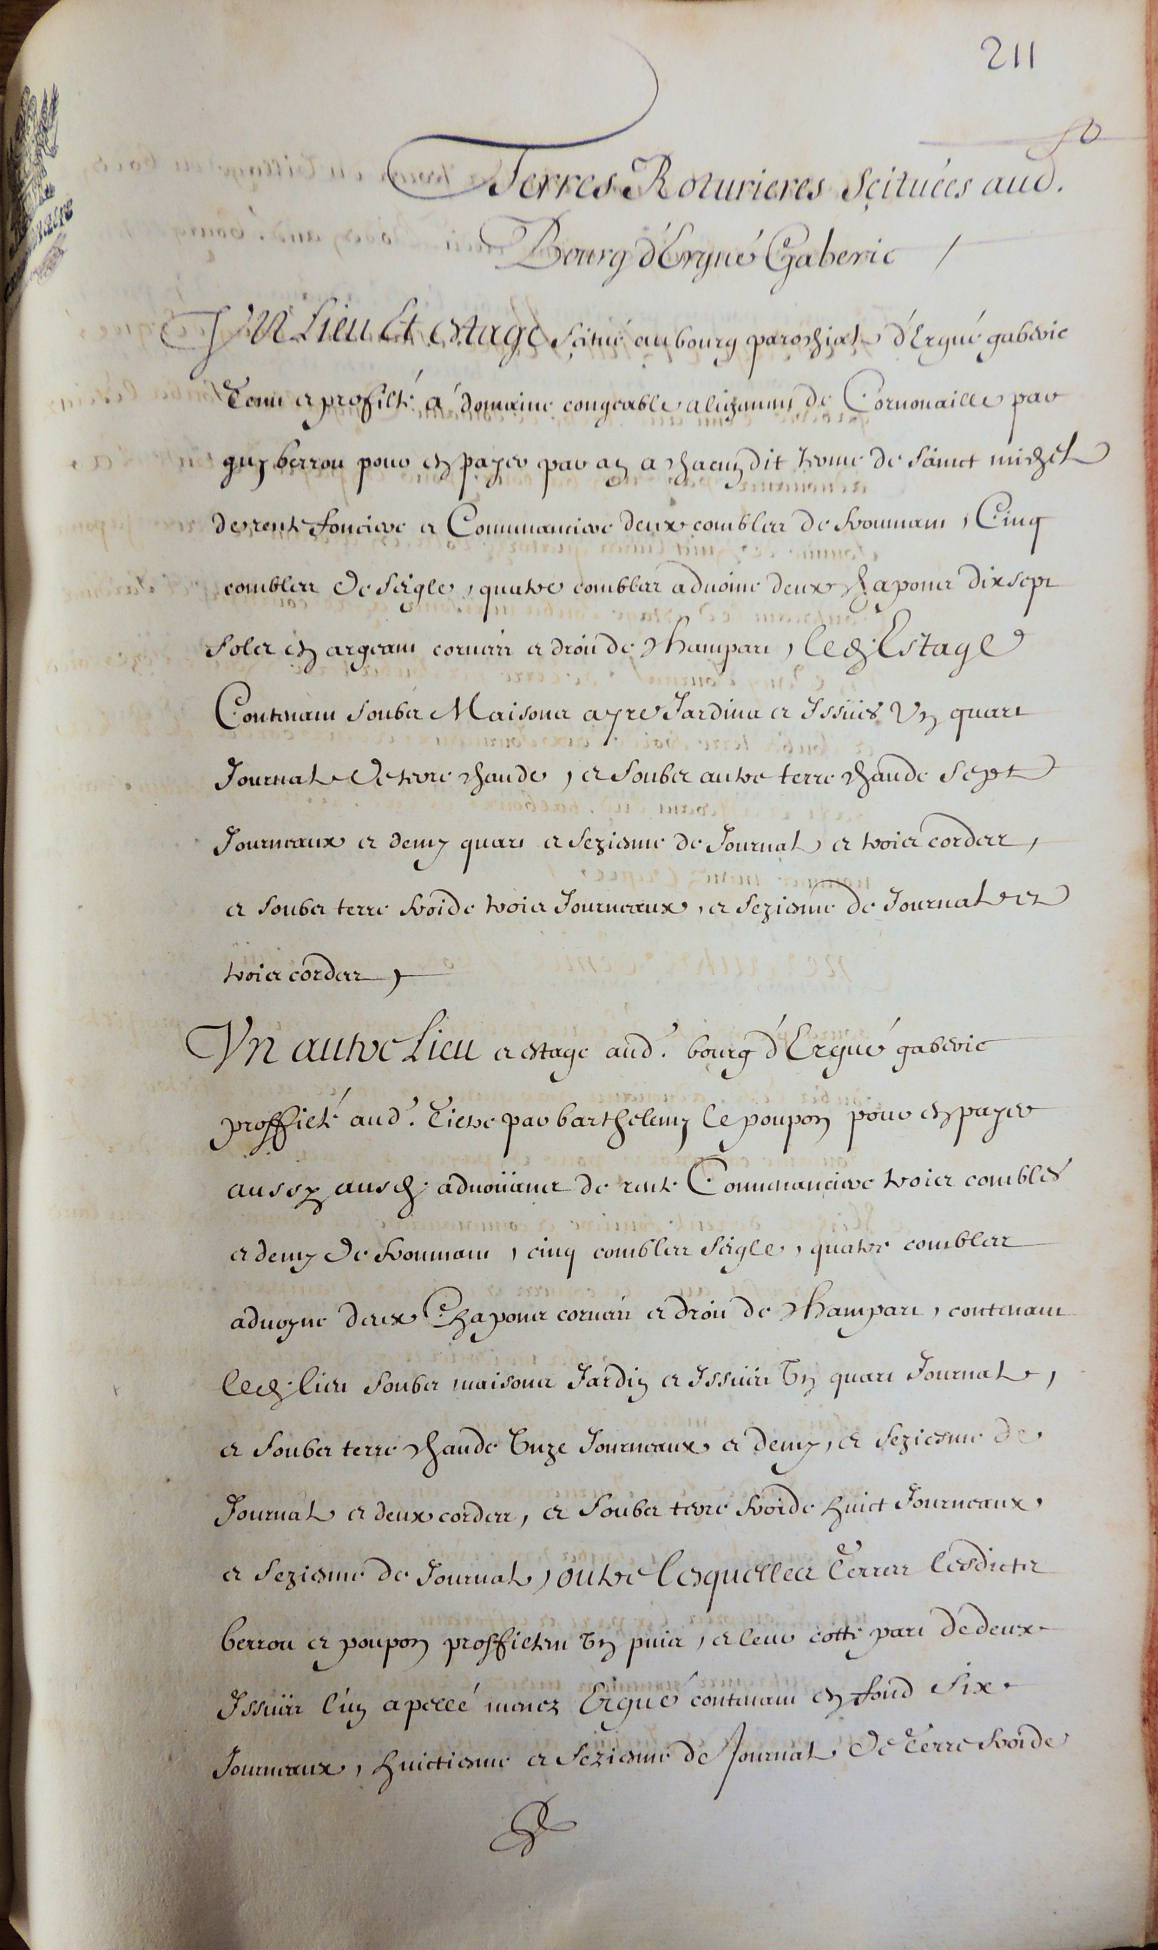 211
Terres Roturieres Scituées aud.
Bourg d'Ergué Gaberic /
Un Lieu Et estage scitué au bourg parochial d'Ergué gaberic
Tenu et profitté à domaine congeable a l'usement de Cornouaille par
guy berrou pour en payer par an a chacun dit terme de sainct michel
de rente fonciere et Convenanciere deux combles de fromant, Cinq
combles de seigle, quatre combles advoine deux chapons dix sept
sols en argeant corvées et droit de champart, led. Estage
Contenant soubs Maisons ayre Jardins et Issües Un quart
Journal de terre chaude, et soubs autre terre chaude Sept
Journeaux et demy quart et seziesme de Journal et trois cordes,
et soubs terre froide trois Journeaux, et seziesme de Journal et
trois cordes,
Un autre Lieu et estage aud. bourg d'Ergué gaberic
proffité aud. Tiltre par barthelemy le poupon pour en payer
aussy ausd. advoüants de rente Convenanciere trois combles
et demy de fromant, cinq combles seigle, quatre combles
advoyne deux Chapons corvées et droit de champart, contenant
led. lieu soubs maisons Jardin et Issües Un quart Journal,
et soubs terre chaude Unze Journeaux et demy, et seziesme de
Journal et deux cordes, et soubs terre froide huict Journeaux
et seziesme de Journal, outre lesquelles Terres lesdicts
berrou et poupon proffitent Un puis, et leur cotte part de deux
Issües l'un apellé menez Ergué contenant en fond Six
Journeaux, huictiesme et seziesme de Journal de Terre froide